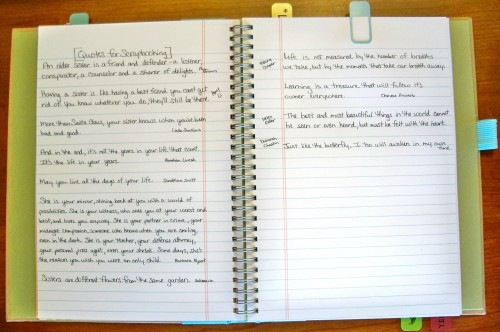 [Quotes for Scrapbooking]
An older sister is a friend and defender - a listener,
conspirator, a counselor and a sharer of delights.
Having a sister is like having a best friend you can't get
rid of. You know whatever you do, they'll still be there.
More than Santa Claus, your sister knows when you've been
bad and good. Linda Sunshine
And in the end, it's not the years in your life that count.
It's the life in your years. Abraham Lincoln
May you live all the days of your life. Jonathan Swift
She is your mirror, shining back at you with a world of
possibilities. She is your witness, who sees you at your worst and
best, and loves you anyway. She is your partner in crime, your
midnight companion, someone who knows when you are smiling,
even in the dark. She is your teacher, your defense attorney,
your personal press agent, even your shrink. Some days, she's
the reason you wish you were an only child. Barbara Alpert
Sisters are different flowers from the same garden. Unknown
Life is not measured by the number of breaths
we take, but by the moments that take our breath away.
Learning is a treasure that will follow its
owner everywhere. Chinese Proverb
Helen Keller
The best and most beautiful things in the world cannot
be seen or even heard, but must be felt with the heart.
Deborah Chaskin
Just like the butterfly, I too will awaken in my own
time.